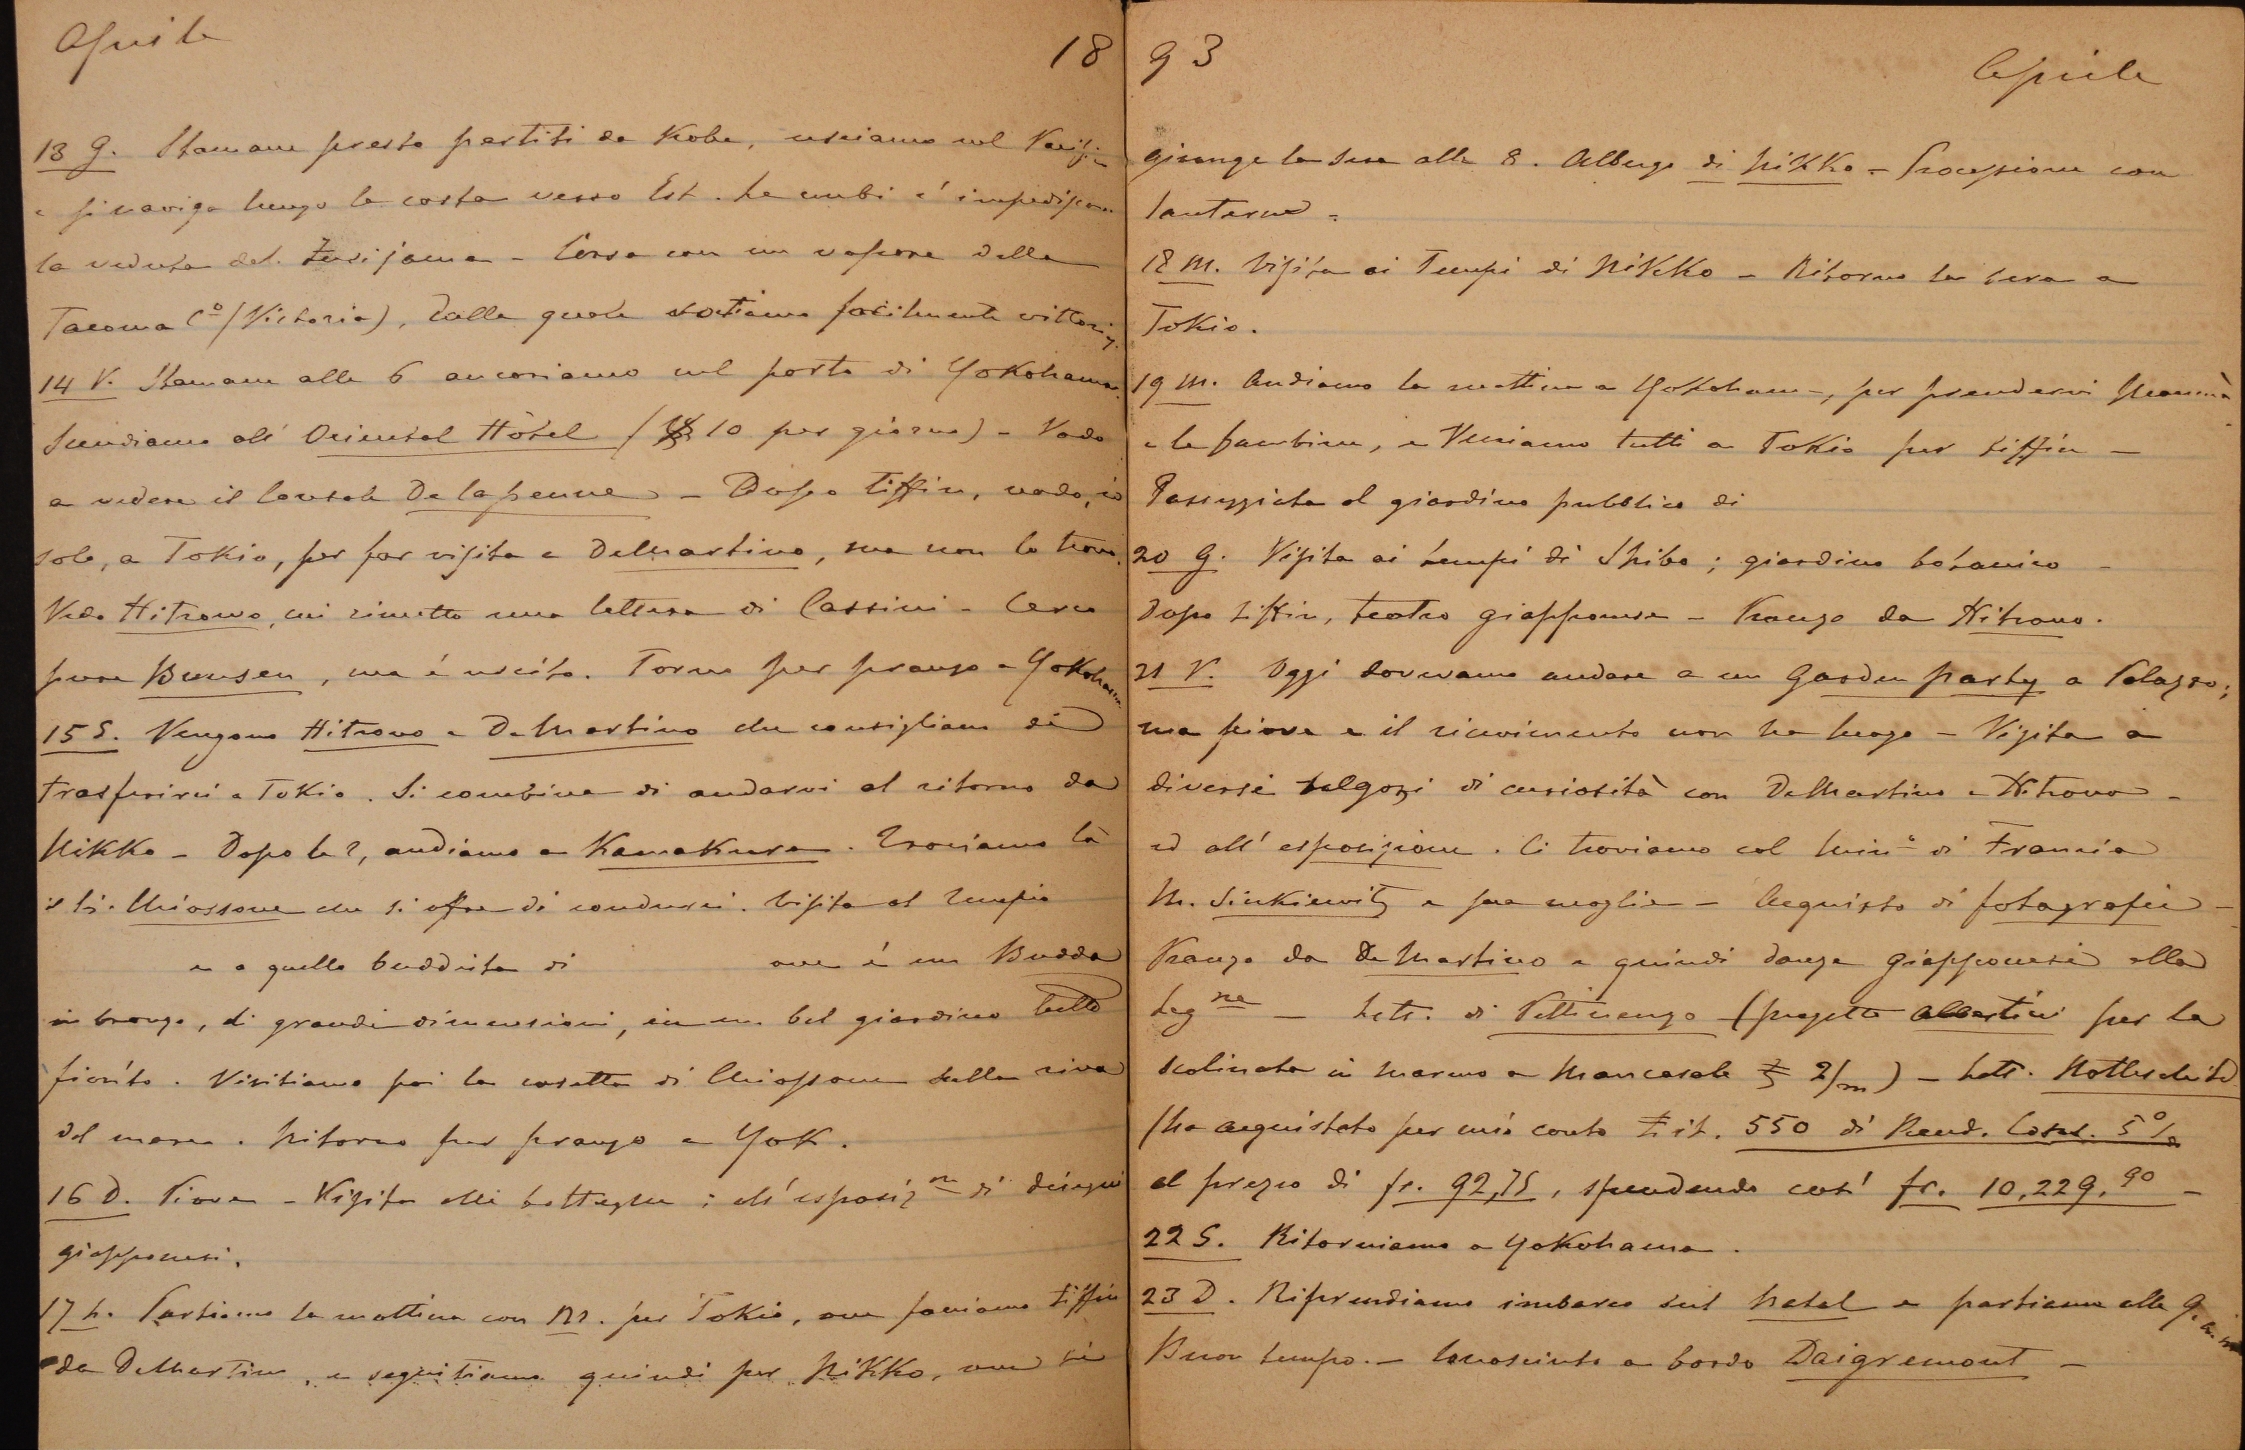 Aprile 18
13 G. Stamane presto partiti da Kobe, usciamo nel Pacif.
e si naviga lungo la costa verso Est. Le nubi c'impediscono
la veduta del Fusijama - Corsa con un vapore della
Tacoma Cº (Victoria), dalla quale sortiamo facilmente vittoriosi.
14 V. Stamane alle 6 ancoriamo nel porto di Yokohama.
Scendiamo all'Oriental Hôtel ($ 10 per giorno) - Vado
a vedere il Console De la penne - Dopo tiffin, vado, io
solo, a Tokio, per far visita a DeMartino, ma non lo trovo.
Vedo Hitrowo, mi rimette una lettera di Cassini - Cerco
pure Bunsen, ma é uscito. Torno per pranzo a Yokohama
15 S. Vengono Hitrovo e DeMartino che consigliano di
trasferirci a Tokio. Si combina di andarvi al ritorno da
Nikko - Dopo le 2, andiamo a Kamakura. Troviamo là
il Si. Chiossone che si offre di condurci. Visita al tempio
e a quello buddista di ove é un Budda
in bronzo, di grandi dimensioni, in un bel giardino tutto
fiorito. Visitiamo poi la casetta di Chiossone sulla riva
del mare. Ritorno per pranzo a Yok.
16 D. Piove - Visita alle botteghe; all'esposizne di disegni
giapponesi.
17 L. Partiamo la mattina con Br. per Tokio, ove facciamo tiffin
da DeMartino, e seguitiamo quindi per Nikko, ove si
93 Aprile
giunge la sera alle 8. Albergo di Nikko - Processione con
lanterne -
18 M. Visita ai Tempi di Nikko - Ritorno la sera a
Tokio.
19 M. Andiamo la mattina a Yokoham-, per prendervi Mammà
e le bambine, e Veniamo tutti a Tokio per tiffin -
Passeggiata al giardino pubblico di
20 G. Visita ai tempi di Shiba; giardino botanico -
Dopo tiffin, teatro giapponese - Pranzo da Hitrovo.
21 V. Oggi dovevamo andare a un Garden party a Palazzo;
ma piove e il ricevimento non ha luogo - Visita a
diversi negozi di curiosità con DeMartino e Hitrovo -
ed all'esposizione. Ci troviamo col Minº di Francia
M. Sinkiewitz e sua moglie - Acquisto di fotografie -
Pranzo da DeMartino e quindi danze giapponesi alla
Legne - Lett. di Pettinengo (progetto Albertini per la
scalinata in marmo a Mancasale £ 2/m) - Lett. Rothschild
(ha acquistato per mio conto £ it. 550 di Rend. Cons. 5%
al prezzo di fr. 92,75, spendendo così fr. 10,229.90 -
22 S. Ritorniamo a Yokohama.
23 D. Riprendiamo imbarco sul Natal e partiamo alle 9 a.m
Buon tempo. - Conosciuto a bordo Daigremont -